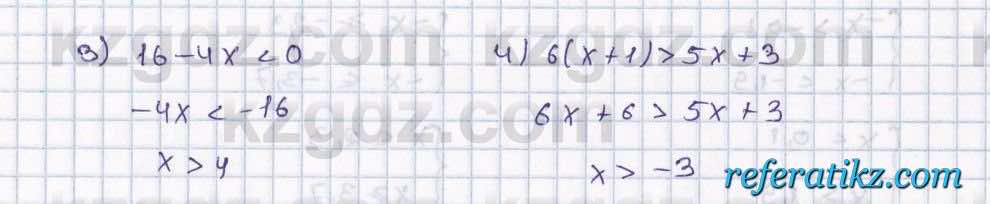 3) 16-4x<0
-4x<-16
x>4
4) 6(x+1)>5x+3
6x+6>5x+3
x>-3
kzgdz.com
referatikz.com